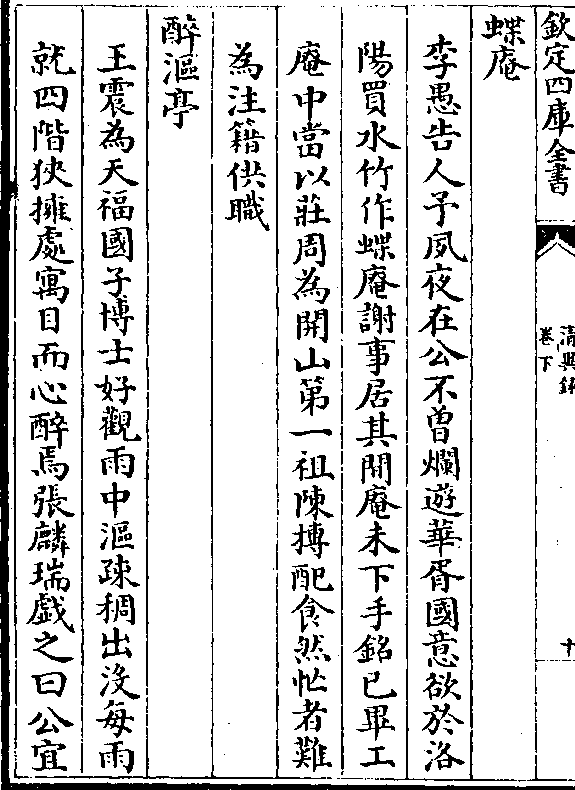 欽定四庫全書
清異録
卷下
十
蝶庵
李愚告人予夙夜在公不曾爛遊華胥國意欲於洛
陽買水竹作蝶庵謝事居其間庵未下手銘已畢工
庵中當以莊周為開山第一祖陳摶配食然忙者難
為注籍供職
醉漚亭
王震為天福國子博士好觀雨中漚疎稠出沒每雨
就四階狹擁處寓目而心醉焉張麟瑞戯之曰公宜